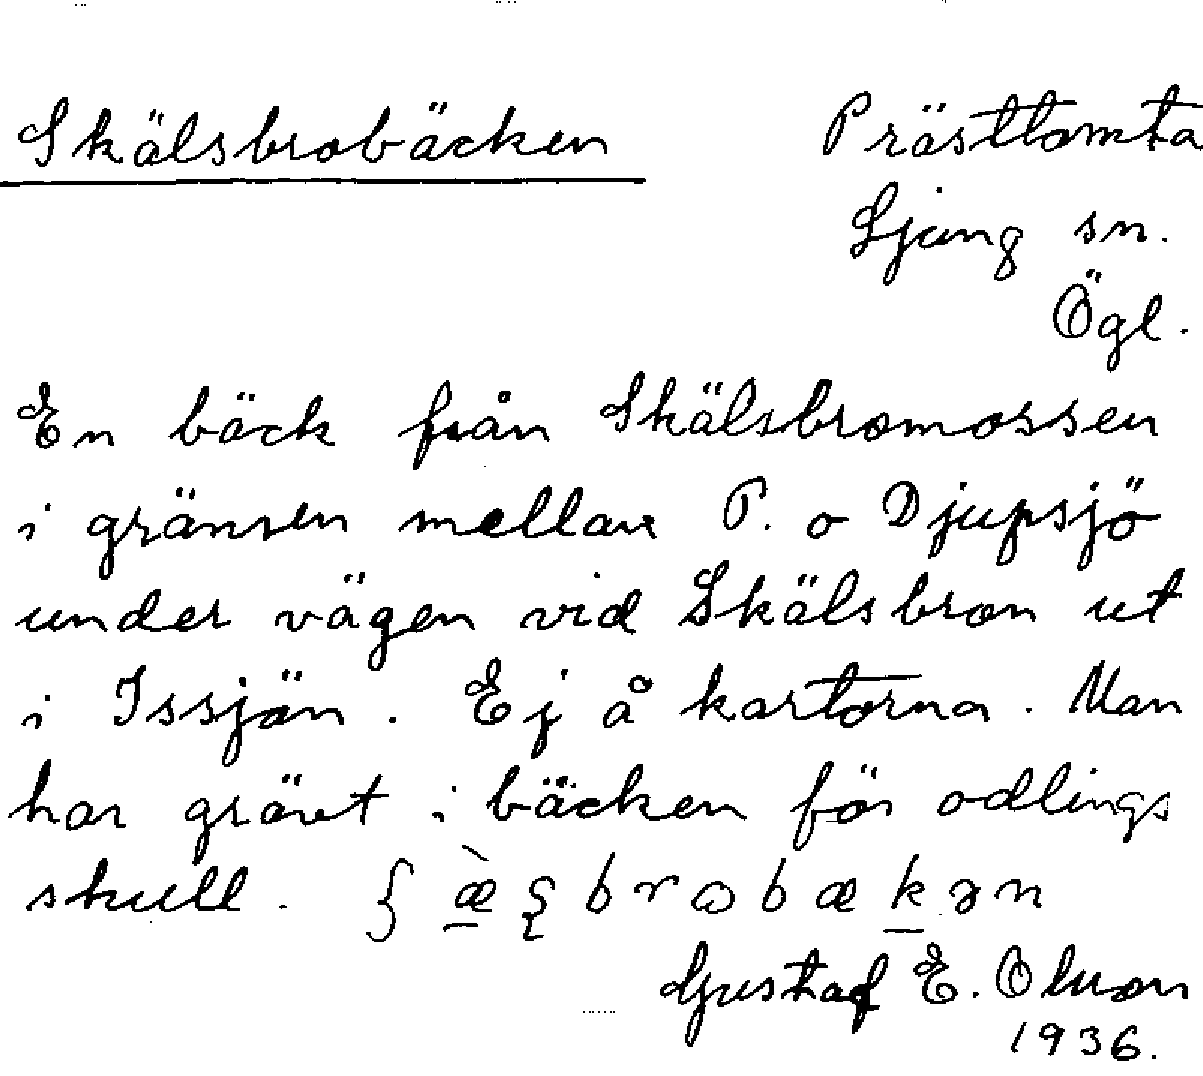 Skälsbrobäcken
Prästtomta
Ljung sn.
Ögl.
En bäck från Skälsbromossen
i gränsen mellan P. o Djupsjö
under vägen vid Skälsbron ut
i Issjön. Ej å kartorna. Man
har grävt i bäcken för odlings
skull.
Gustaf E. Olsson
1936.